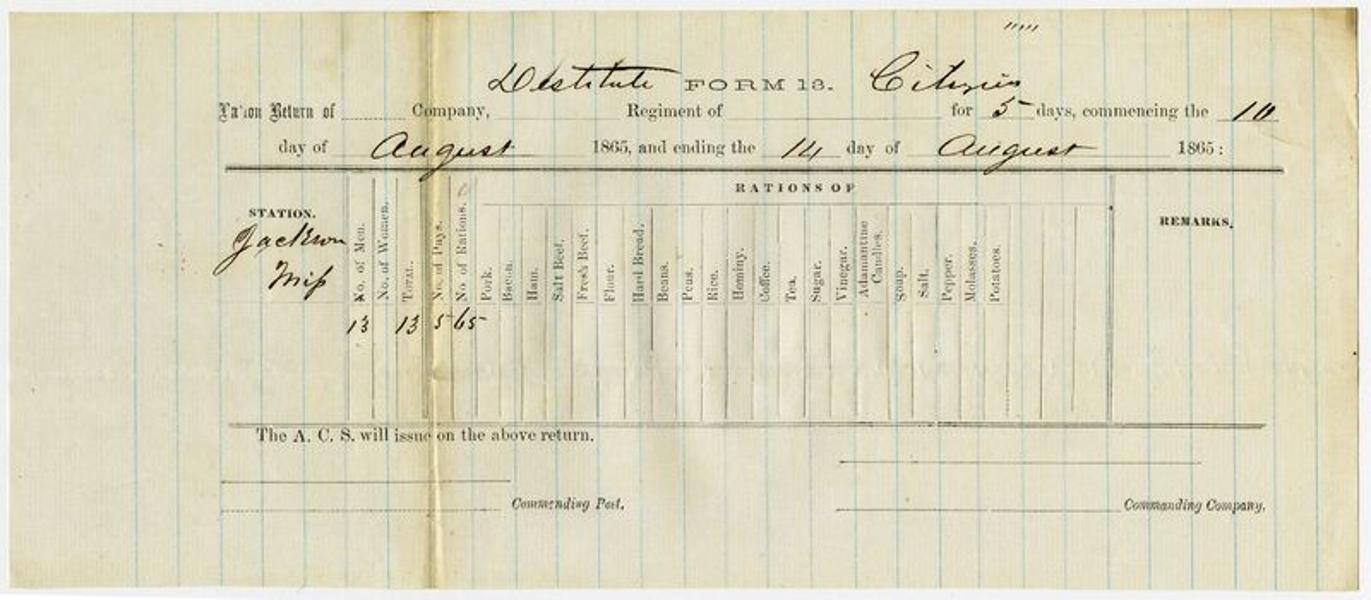 ""
Destitute FORM 13. Citizens
Ration Return of Company, Regiment of for 5 days, commencing the 10
day of August 1865, and ending the 14 day of August 1865:
RATIONS OF
STATION. No. of Men. No. of Women. Total. No. of Days. No. of Rations. Pork. Bacon. Ham. Salt Beef. Fresh Beef. Flour. Hard Bread. Beans. Peas. Rice. Hominy. Coffee. Tea. Sugar. Vinegar. Adamantine Candles. Soap. Salt. Pepper. Molasses. Potatoes. REMARKS.
Jackson
Miss
13 13 5 65
The A. C. S. will issue on the above return.
Commending Post. Commanding Company.